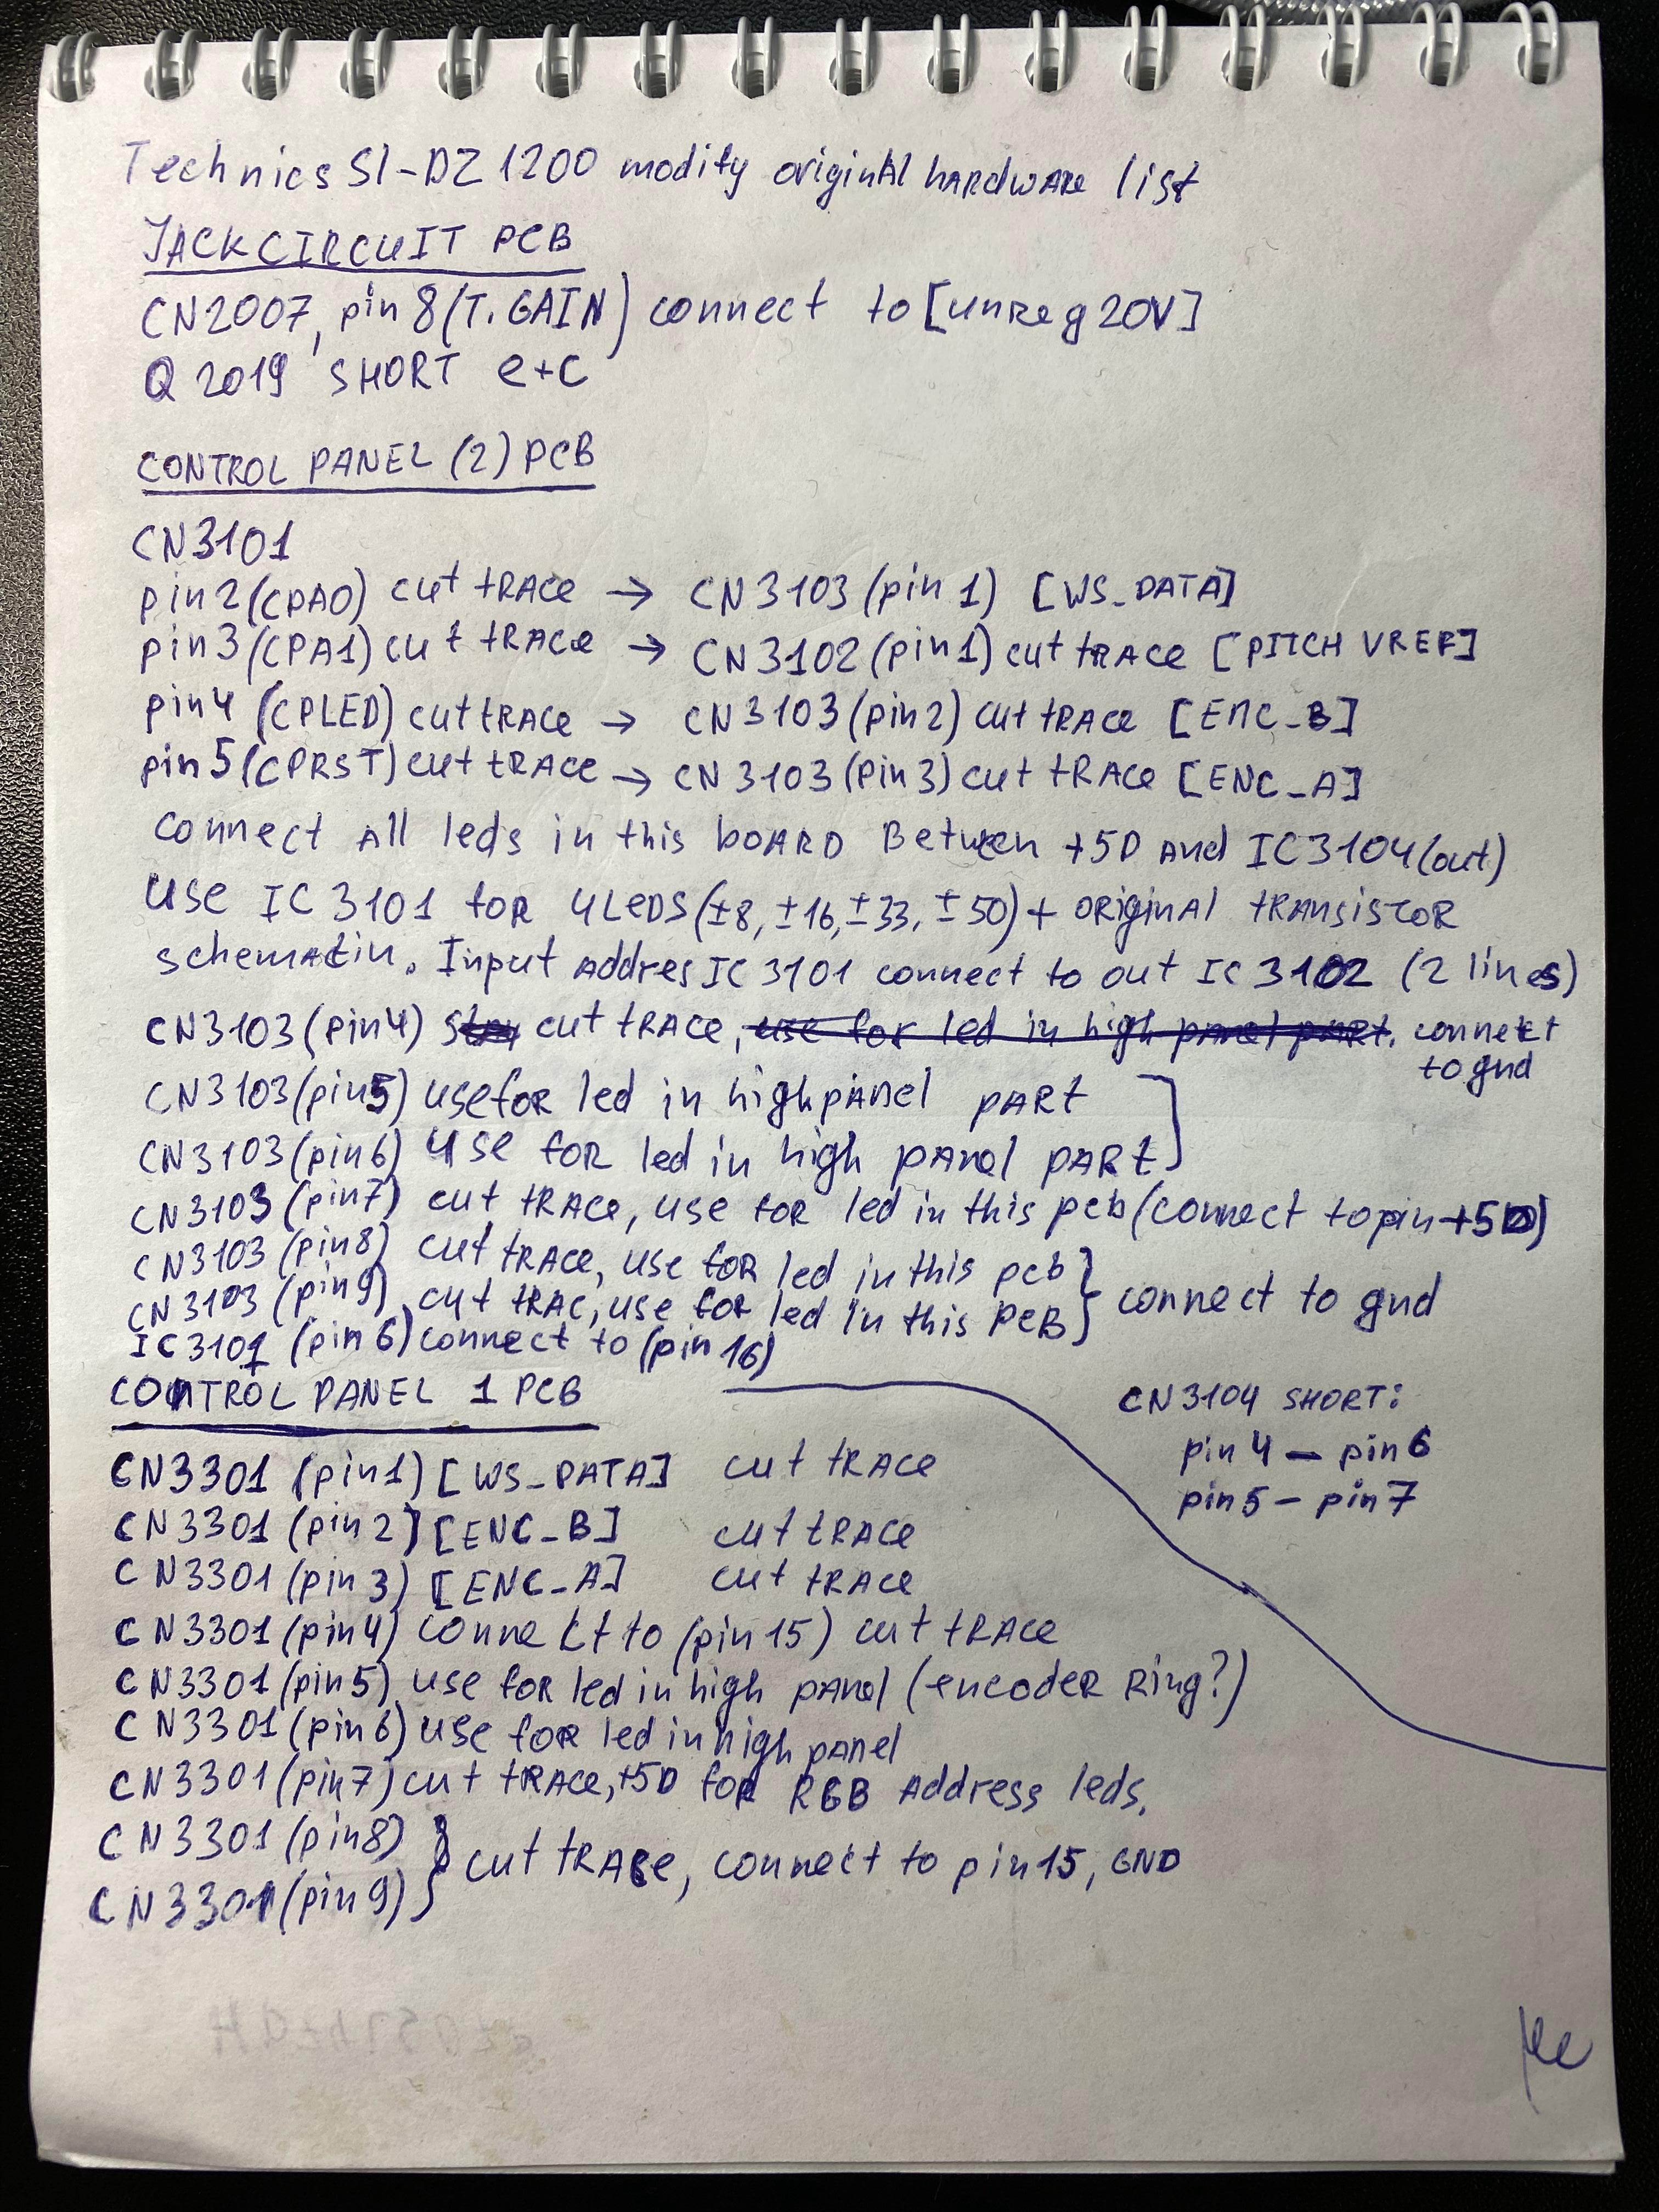 Technics Sl-DZ1200 modify original hardware list
JACKCIRCUIT PCB
CN2007, pin 8 (T.GAIN) connect to [unreg 20V]
Q 2019 SHORT e+C
CONTROL PANEL (2) PCB
CN3101
pin2 (CPA0) cut trace → CN3103 (pin 1) [WS_DATA]
pin3 (CPA1) cut trace → CN3102 (pin1) cut trace [PITCH VREF]
pin4 (CPLED) cut trace → CN3103 (pin2) cut trace [ENC_B]
pin5 (CPRST) cut trace → CN3103 (pin3) cut trace [ENC_A]
connect all leds in this board Between +5D and IC3104(out)
use IC 3101 for 4LEDS (±8, ±16, ±33, ±50) + original transistor
schematin. Input addres IC 3101 connect to out IC 3102 (2 lines)
CN3103 (pin4) cut trace, use for led in high panel part. connekt
to gnd
CN3103 (pin5) use for led in high panel part
CN3103 (pin6) use for led in high panel part
CN3103 (pin7) cut trace, use for led in this pcb (connect to pin +5D)
CN3103 (pin8) cut trace, use for led in this pcb
CN3103 (pin9) cut trac, use for led in this PCB } connect to gnd
IC3101 (pin 6) connect to (pin 16)
CONTROL PANEL 1 PCB
CN3104 SHORT:
pin 4 — pin 6
pin 5 — pin 7
CN3301 (pin1) [WS_DATA] cut trace
CN3301 (pin2) [ENC_B] cut trace
CN3301 (pin3) [ENC_A] cut trace
CN3301 (pin4) connekt to (pin 15) cut trace
CN3301 (pin5) use for led in high panel (encoder Ring?)
CN3301 (pin6) use for led in high panel
CN3301 (pin7) cut trace, +5D for RGB Address leds.
CN3301 (pin8) } cut trace, connect to pin15, GND
CN3301 (pin9)